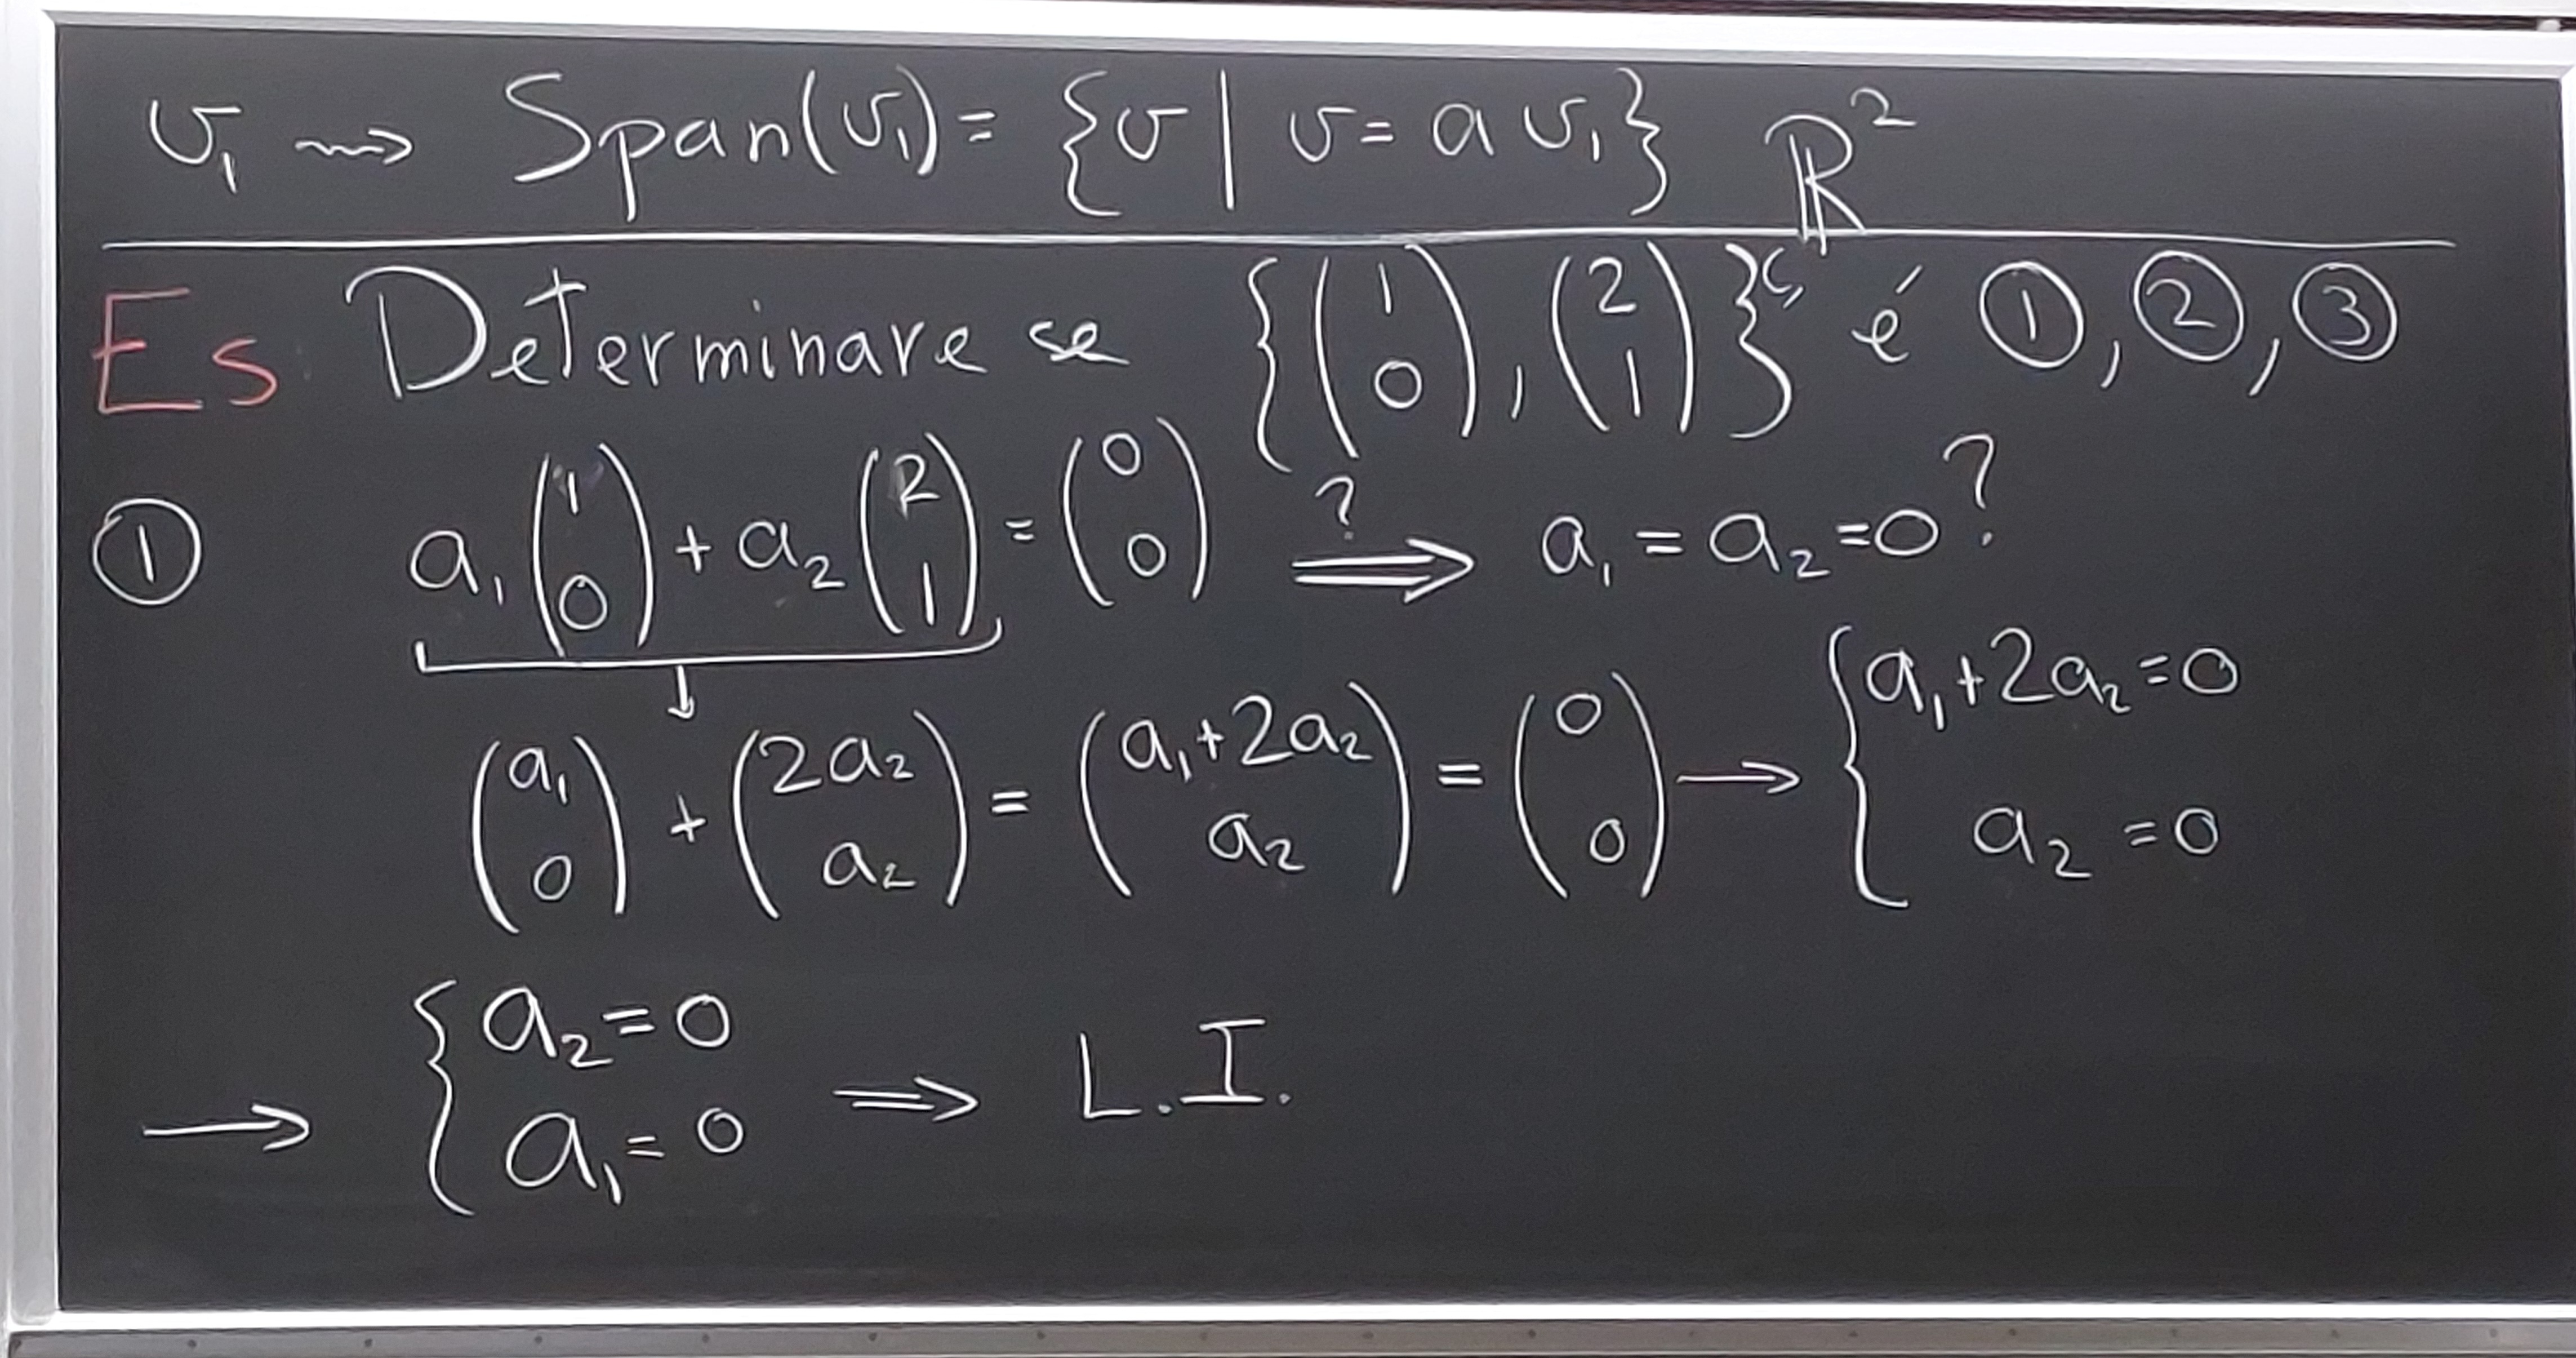 v₁ ⇝ Span(v₁) = {v | v = a v₁} ℝ²
Es Determinare se {(1 0), (2 1)} é ①, ②, ③
① a₁(1 0) + a₂(2 1) = (0 0) ?⟹ a₁ = a₂ = 0?
↓
(a₁ 0) + (2a₂ a₂) = (a₁+2a₂ a₂) = (0 0) → { a₁+2a₂=0
a₂ = 0
→ { a₂ = 0
a₁ = 0 ⟹ L.I.